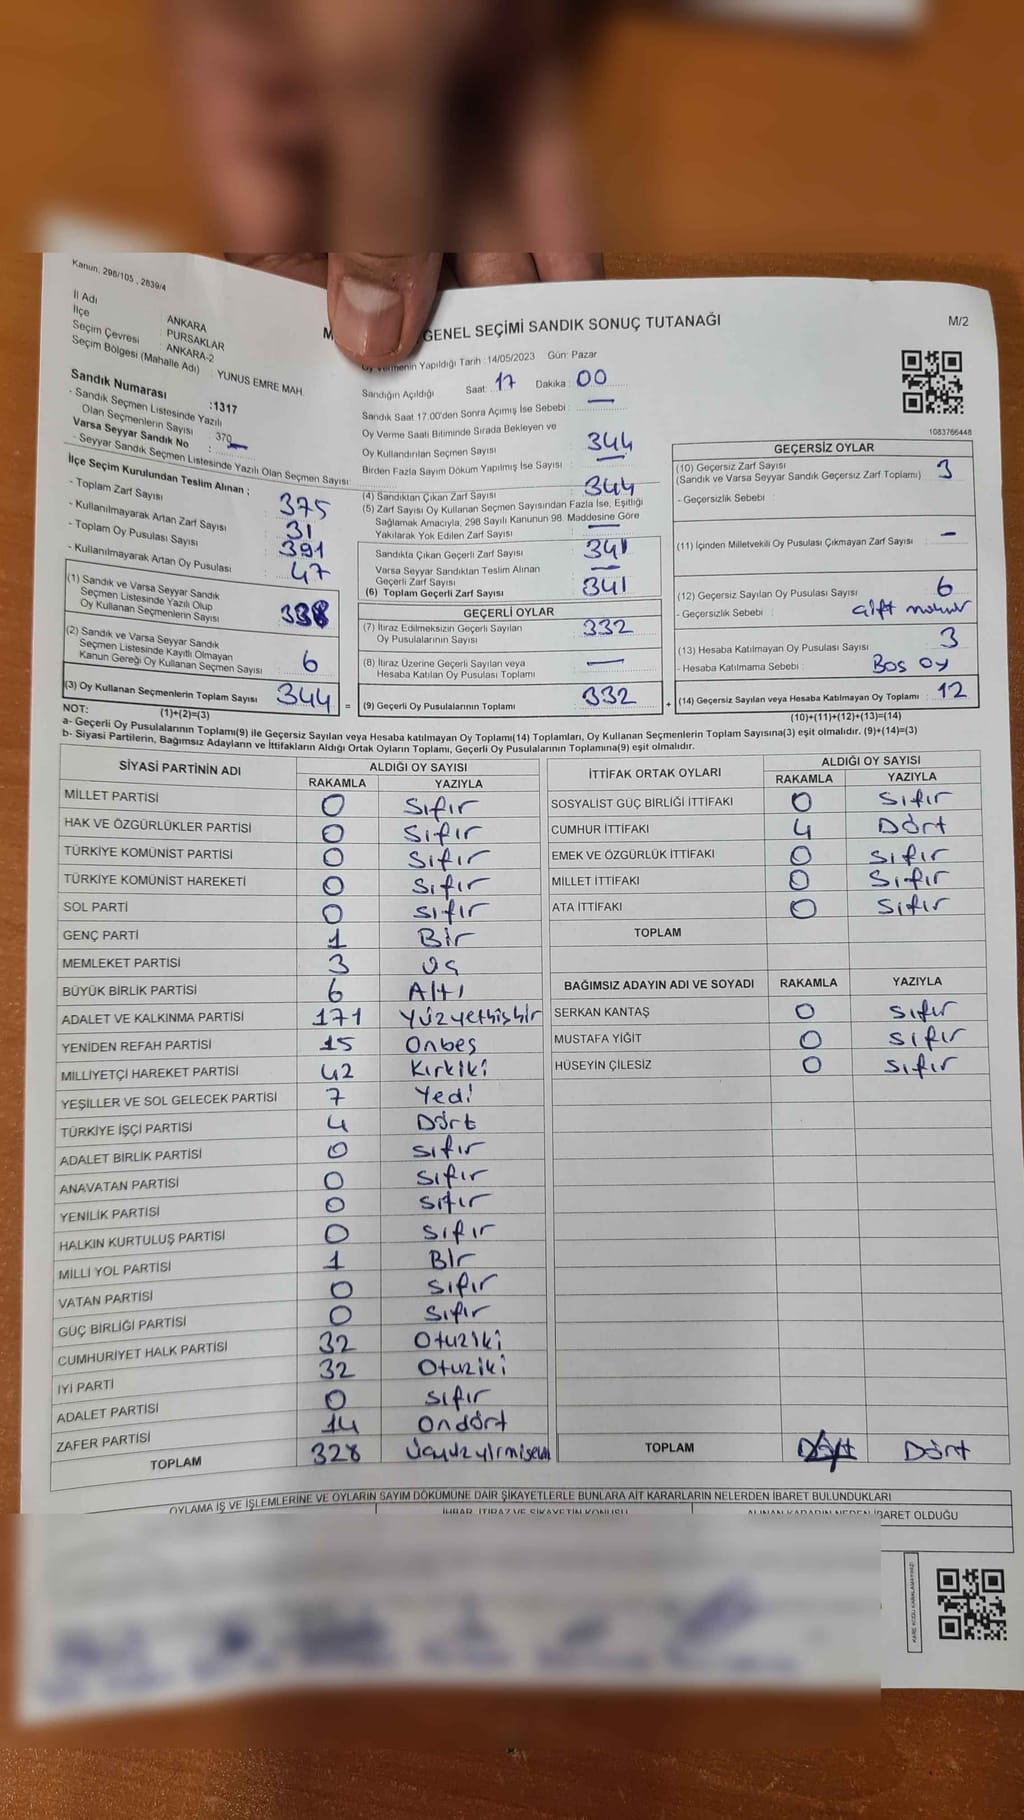 Kanun, 298/105 , 2839/4
GENEL SEÇİMİ SANDIK SONUÇ TUTANAĞI
M/2
İl Adı : ANKARA
İlçe : PURSAKLAR
Seçim Çevresi : ANKARA-2
Seçim Bölgesi (Mahalle Adı) : YUNUS EMRE MAH.
Sandık Numarası :1317
- Sandık Seçmen Listesinde Yazılı
Olan Seçmenlerin Sayısı : 370
Varsa Seyyar Sandık No : —
- Seyyar Sandık Seçmen Listesinde Yazılı Olan Seçmen Sayısı:
İlçe Seçim Kurulundan Teslim Alınan ;
- Toplam Zarf Sayısı : 375
- Kullanılmayarak Artan Zarf Sayısı : 31
- Toplam Oy Pusulası Sayısı : 391
- Kullanılmayarak Artan Oy Pusulası : 47
(1) Sandık ve Varsa Seyyar Sandık
Seçmen Listesinde Yazılı Olup
Oy Kullanan Seçmenlerin Sayısı : 338
(2) Sandık ve Varsa Seyyar Sandık
Seçmen Listesinde Kayıtlı Olmayan
Kanun Gereği Oy Kullanan Seçmen Sayısı : 6
(3) Oy Kullanan Seçmenlerin Toplam Sayısı : 344
(1)+(2)=(3)
Oy Vermenin Yapıldığı Tarih : 14/05/2023 Gün: Pazar
Sandığın Açıldığı Saat: 17 Dakika : 00
Sandık Saat 17.00'den Sonra Açımış İse Sebebi : —
Oy Verme Saati Bitiminde Sırada Bekleyen ve
Oy Kullandırılan Seçmen Sayısı : 344
Birden Fazla Sayım Döküm Yapılmış İse Sayısı : —
(4) Sandıktan Çıkan Zarf Sayısı : 344
(5) Zarf Sayısı Oy Kullanan Seçmen Sayısından Fazla İse, Eşitliği
Sağlamak Amacıyla, 298 Sayılı Kanunun 98. Maddesine Göre
Yakılarak Yok Edilen Zarf Sayısı : —
Sandıkta Çıkan Geçerli Zarf Sayısı : 341
Varsa Seyyar Sandıktan Teslim Alınan
Geçerli Zarf Sayısı : —
(6) Toplam Geçerli Zarf Sayısı : 341
GEÇERLİ OYLAR
(7) İtiraz Edilmeksizin Geçerli Sayılan
Oy Pusulalarının Sayısı : 332
(8) İtiraz Üzerine Geçerli Sayılan veya
Hesaba Katılan Oy Pusulası Toplamı : —
= (9) Geçerli Oy Pusulalarının Toplamı : 332
1083766448
GEÇERSİZ OYLAR
(10) Geçersiz Zarf Sayısı : 3
(Sandık ve Varsa Seyyar Sandık Geçersiz Zarf Toplamı)
- Geçersizlik Sebebi :
(11) İçinden Milletvekili Oy Pusulası Çıkmayan Zarf Sayısı : -
(12) Geçersiz Sayılan Oy Pusulası Sayısı : 6
- Geçersizlik Sebebi : Çift mühür
(13) Hesaba Katılmayan Oy Pusulası Sayısı : 3
- Hesaba Katılmama Sebebi : Boş oy
+ (14) Geçersiz Sayılan veya Hesaba Katılmayan Oy Toplamı : 12
(10)+(11)+(12)+(13)=(14)
NOT:
a- Geçerli Oy Pusulalarının Toplamı(9) ile Geçersiz Sayılan veya Hesaba katılmayan Oy Toplamı(14) Toplamları, Oy Kullanan Seçmenlerin Toplam Sayısına(3) eşit olmalıdır. (9)+(14)=(3)
b- Siyasi Partilerin, Bağımsız Adayların ve İttifakların Aldığı Ortak Oyların Toplamı, Geçerli Oy Pusulalarının Toplamına(9) eşit olmalıdır.
SİYASİ PARTİNİN ADI ALDIĞI OY SAYISI
RAKAMLA YAZIYLA
MİLLET PARTİSİ 0 Sıfır
HAK VE ÖZGÜRLÜKLER PARTİSİ 0 Sıfır
TÜRKİYE KOMÜNİST PARTİSİ 0 Sıfır
TÜRKİYE KOMÜNİST HAREKETİ 0 Sıfır
SOL PARTİ 0 Sıfır
GENÇ PARTİ 1 Bir
MEMLEKET PARTİSİ 3 Üç
BÜYÜK BİRLİK PARTİSİ 6 Altı
ADALET VE KALKINMA PARTİSİ 171 Yüzyetmişbir
YENİDEN REFAH PARTİSİ 15 Onbeş
MİLLİYETÇİ HAREKET PARTİSİ 42 Kırkiki
YEŞİLLER VE SOL GELECEK PARTİSİ 7 Yedi
TÜRKİYE İŞÇİ PARTİSİ 4 Dört
ADALET BİRLİK PARTİSİ 0 Sıfır
ANAVATAN PARTİSİ 0 Sıfır
YENİLİK PARTİSİ 0 Sıfır
HALKIN KURTULUŞ PARTİSİ 0 Sıfır
MİLLİ YOL PARTİSİ 1 Bir
VATAN PARTİSİ 0 Sıfır
GÜÇ BİRLİĞİ PARTİSİ 0 Sıfır
CUMHURİYET HALK PARTİSİ 32 Otuziki
İYİ PARTİ 32 Otuziki
ADALET PARTİSİ 0 Sıfır
ZAFER PARTİSİ 14 Ondört
TOPLAM 328 Üçyüzyirmisekiz
İTTİFAK ORTAK OYLARI ALDIĞI OY SAYISI
RAKAMLA YAZIYLA
SOSYALİST GÜÇ BİRLİĞİ İTTİFAKI 0 Sıfır
CUMHUR İTTİFAKI 4 Dört
EMEK VE ÖZGÜRLÜK İTTİFAKI 0 Sıfır
MİLLET İTTİFAKI 0 Sıfır
ATA İTTİFAKI 0 Sıfır
TOPLAM
BAĞIMSIZ ADAYIN ADI VE SOYADI RAKAMLA YAZIYLA
SERKAN KANTAŞ 0 Sıfır
MUSTAFA YİĞİT 0 Sıfır
HÜSEYİN ÇİLESİZ 0 Sıfır
TOPLAM Dört Dört
OYLAMA İŞ VE İŞLEMLERİNE VE OYLARIN SAYIM DÖKÜMÜNE DAİR ŞİKAYETLERLE BUNLARA AİT KARARLARIN NELERDEN İBARET BULUNDUKLARI
İHBAR, İTİRAZ VE ŞİKAYETİN KONUSU
ALINAN KARARIN NEDEN İBARET OLDUĞU
KARE KODU KARALAMAYINIZ!